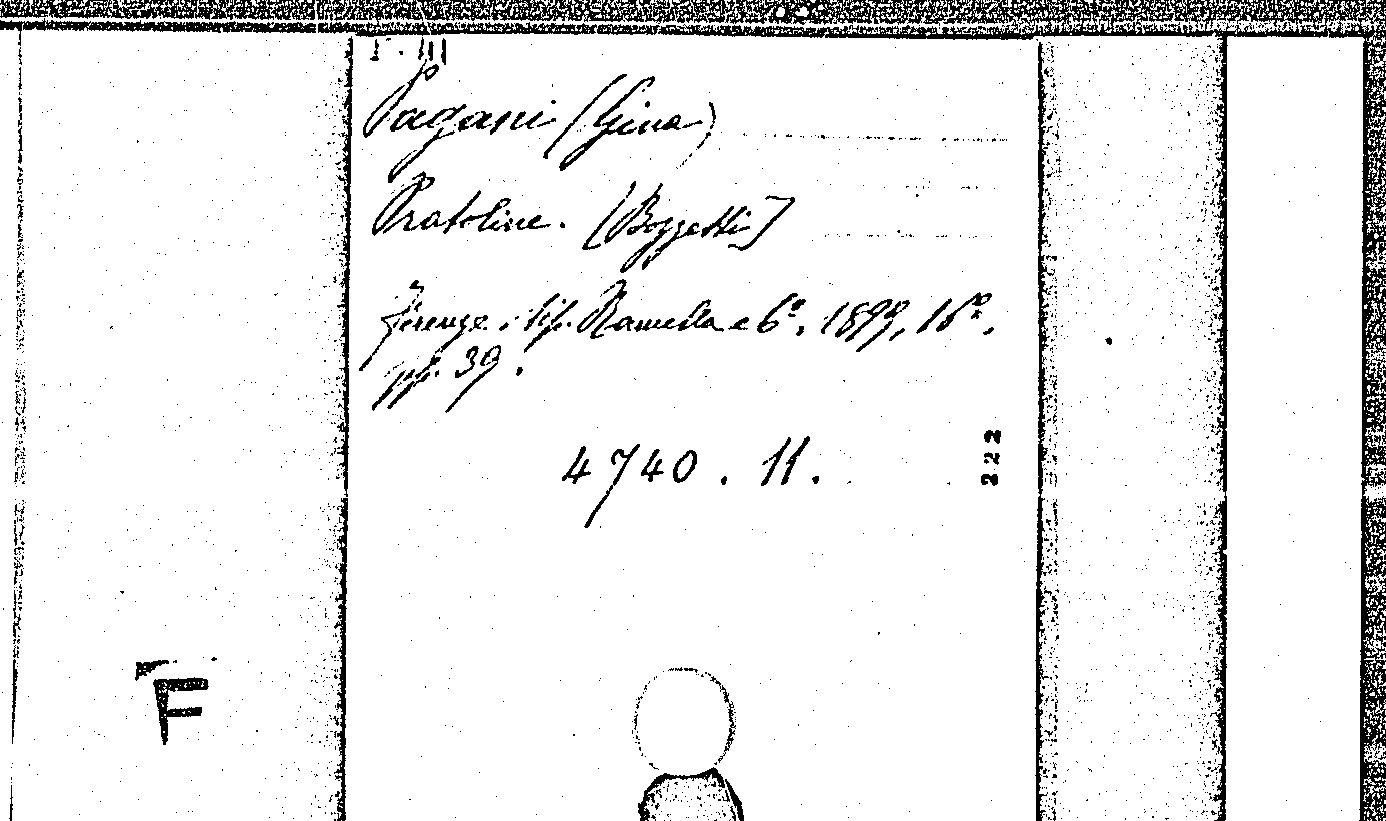 Pagani (Gina)
Pratoline. [Bozzetti]
Firenze, tip. Ramella e Cº. 1899, 16º.
pp. 39.
4740. 11.
222
F